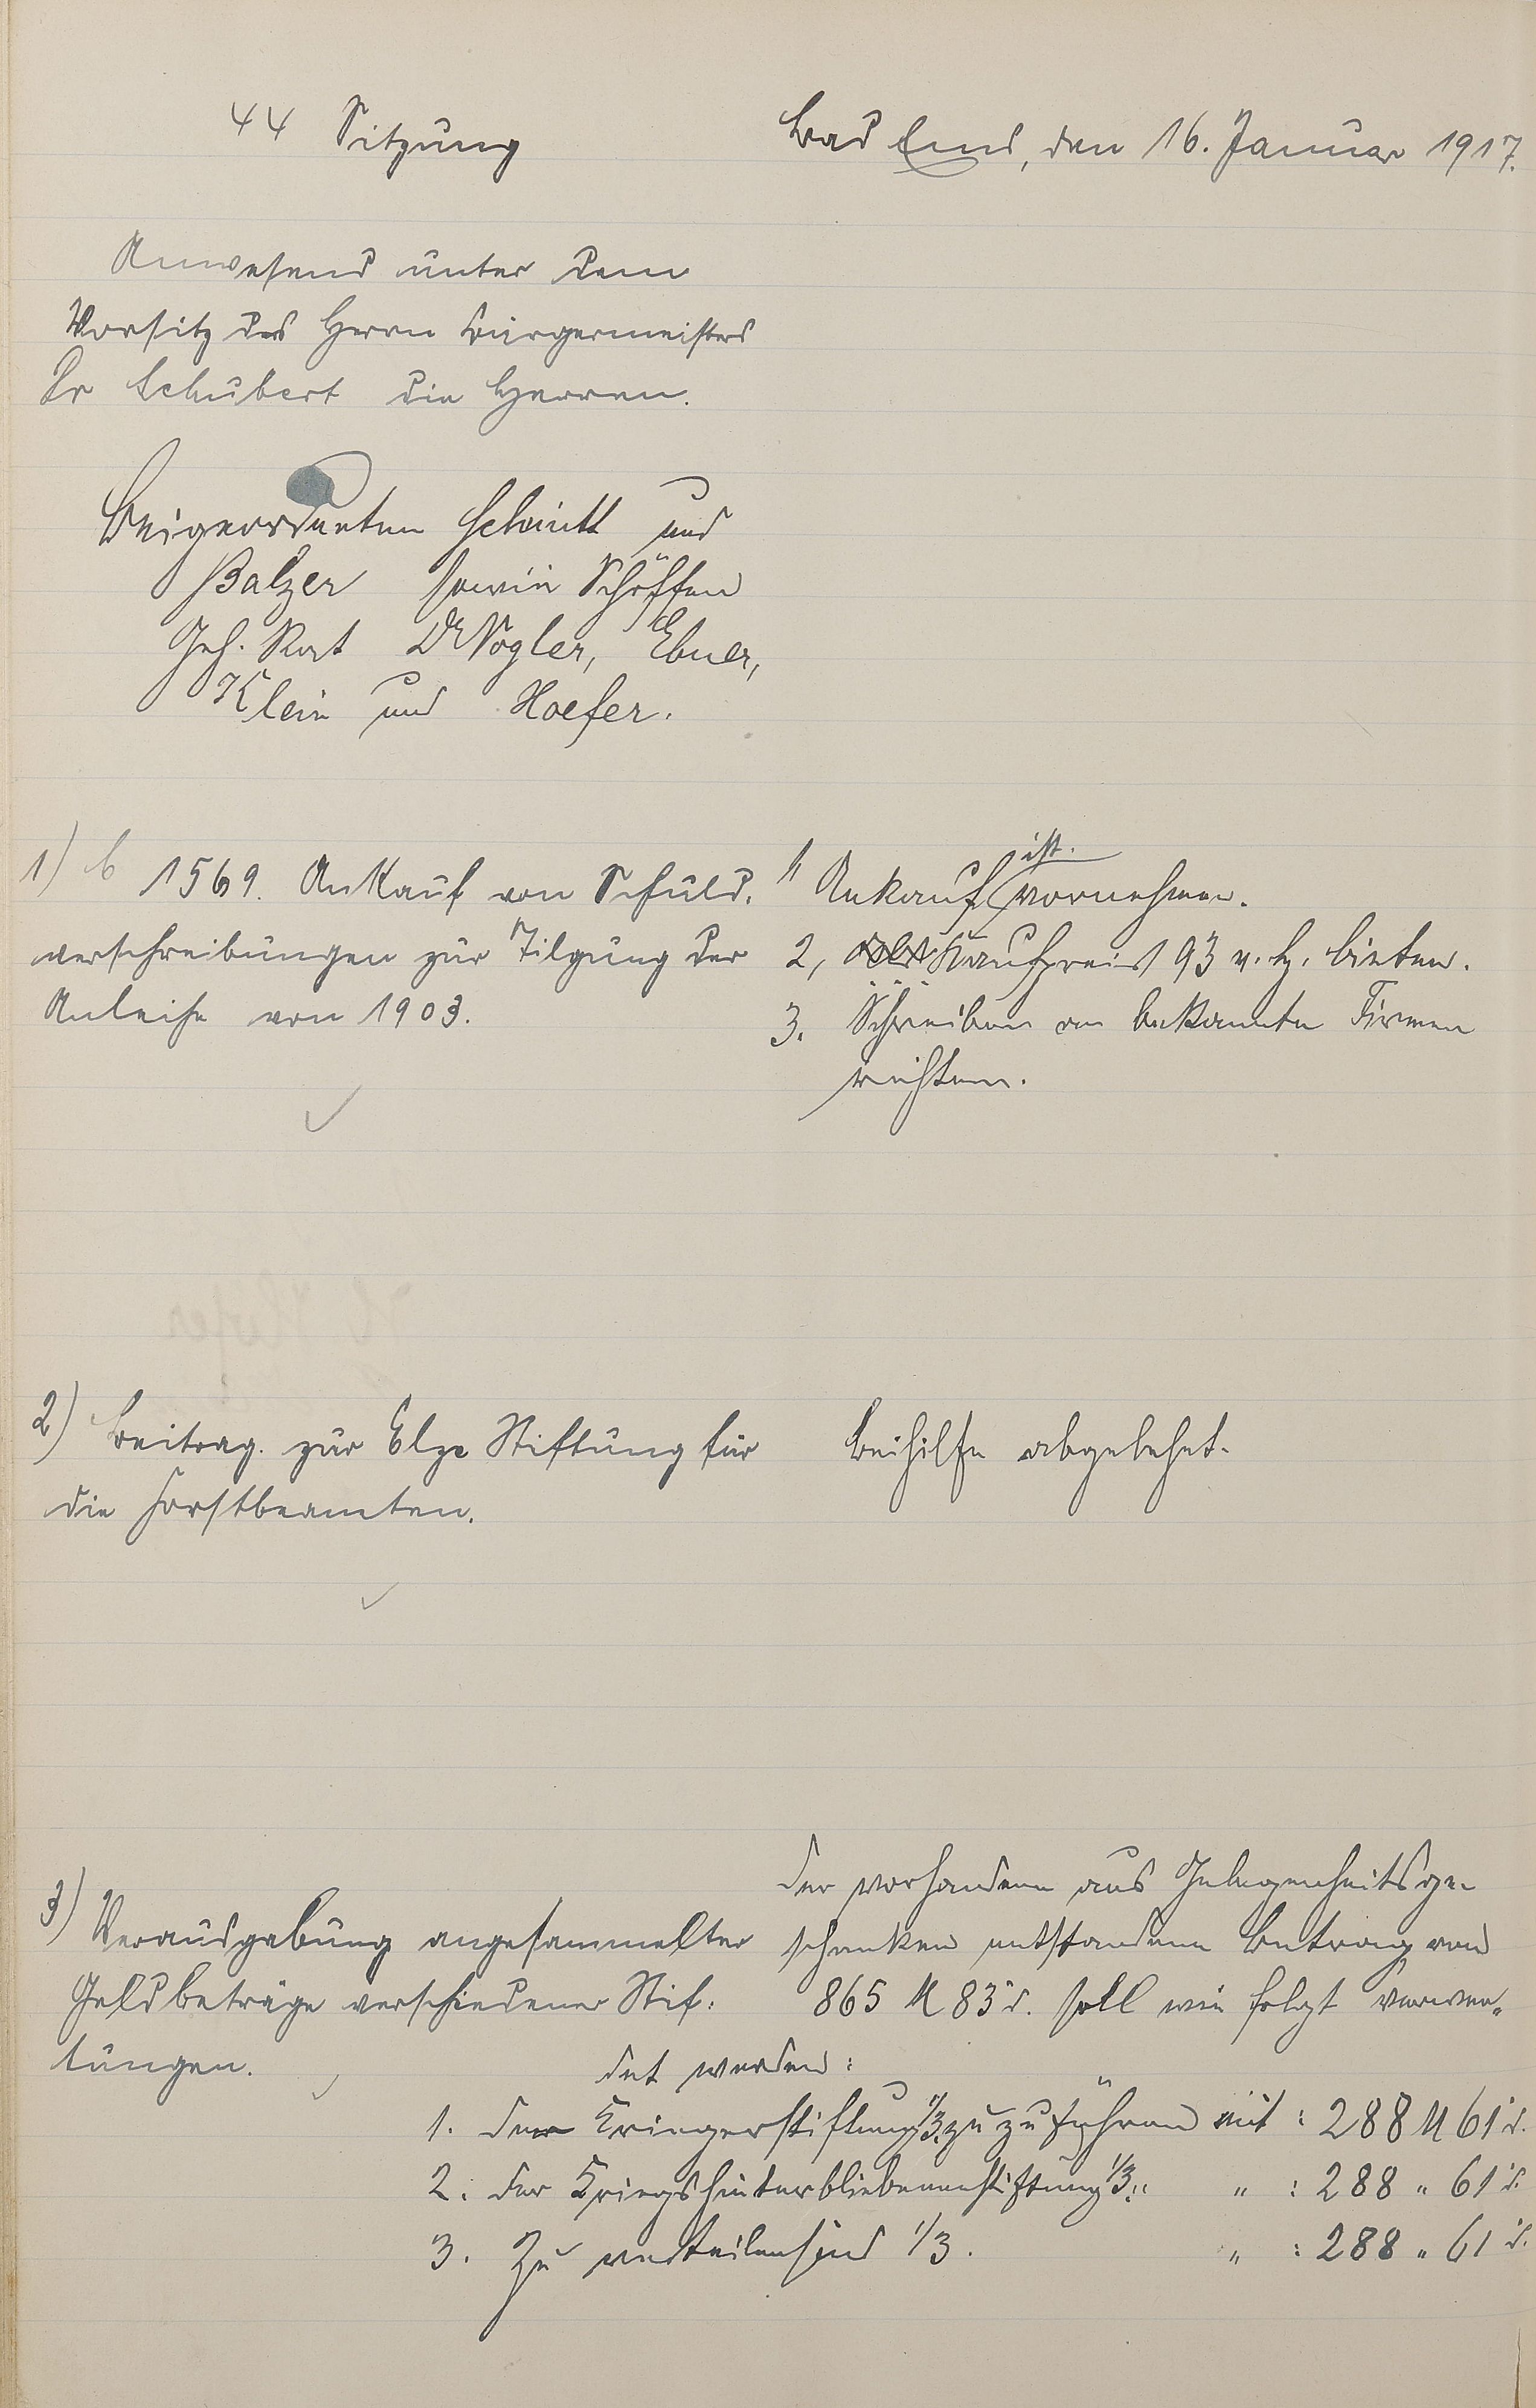 44 Sitzung
Bad Ems, den 16. Januar 1917.
Anwesend unter dem
Vorsitz des Herrn Bürgermeisters
Dr Schubert die Herren.
Beigeordneten Schmitt und
Balzer sowie Schöffen
Geh. Rat Dr Vogler, Ebner,
Klein und Hoefer.
1) b 1569. Ankauf von Schuld.
verschreibungen zur Tilgung der
Anleihe von 1903.
1, Ankauf ist. vornehmen.
2, Kaufpreis 93 v. H. bieten.
3. Schreiben an bekannte Firmen
richten.
2) Beitrag. zur Elze Stiftung für
die Forstbeamten.
Beihilfe abgelehnt.
3) Verausgabung angesammelter
Geldbeträge verschiedener Stif:
tungen.
Der vorhandene aus Gelegenheitsge-
schenken entstandene Betrag von
865 M 83 d. soll wie folgt verwen„
det werden:
1. der Kriegerstiftung 1/3. zu zu führen mit : 288 M 61 d.
2. der Kriegshinterbliebenenstiftung 1/3. " " : 288 " 61 d.
3. Zu verteilen sind 1/3. " : 288 " 61 d.